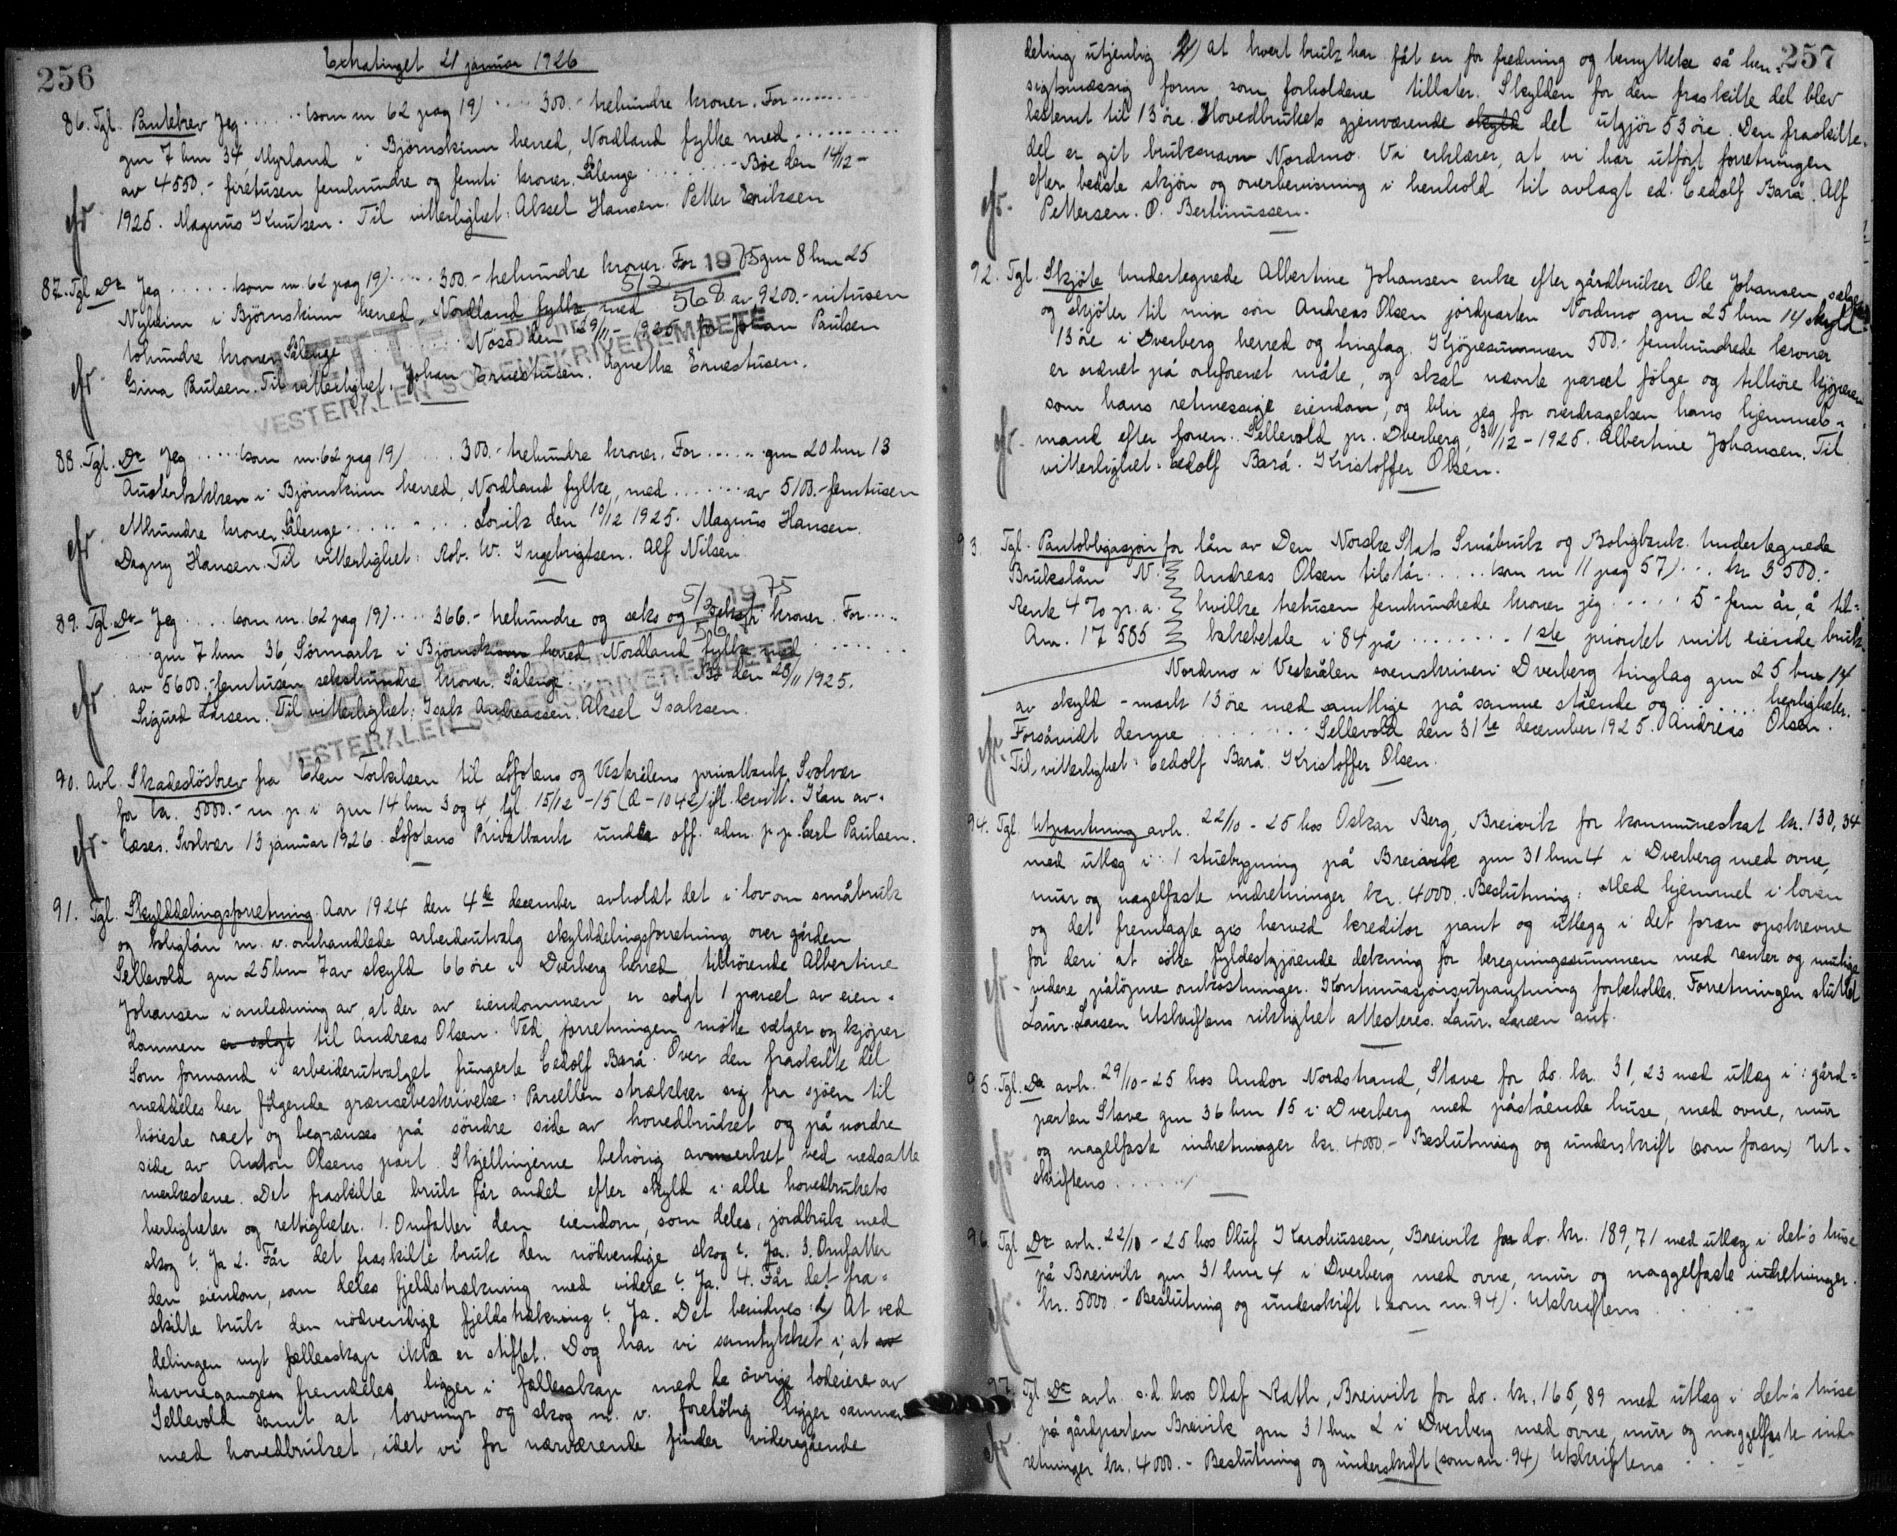 256
Extratinget 21 januar 1926
86. Tgl. Pantebrev Jeg ...... (som nr 62 pag 19) .... 300.- trehundre kroner. For ........
gnr 7 bnr 34, Myrland i Bjørnskinn herred, Nordland fylke med ..........
av 4550.- firetusen femhundre og femti kroner. Sålenge ........ Bøe den 14/12 -
1925. Magnus Knutsen. Til vitterlighet: Aksel Hansen. Petter Eriksen
87. Tgl Do Jeg ...... (som nr. 62 pag 19) .... 300.- trehundre kroner. For ..... gnr 8 bnr 25
Nyheim i Bjørnskinn herred, Nordland fylke med ..... av 9200.- nitusen
tohundre kroner Sålenge ........ Noss den 29/11 - 1925. Johan Paulsen
Gina Paulsen. Til vitterlighet. Johan Ernestusen. Agnethe Ernestusen.
5/2 1975
568
SLETTET I DBnr
VESTERÅLEN SORENSKRIVEREMBETE
88. Tgl. Do Jeg ..... (som nr. 62 pag 19) .... 300.- trehundre kroner. For ...... gnr 20 bnr 13
Austerbakken i Bjørnskinn herred, Nordland fylke, med ....... av 5100.- femtusen
etthundre kroner. Sålenge ......... Lovik den 10/12 1925. Magnus Hansen.
Dagny Hansen. Til vitterlighet: Rob. W. Ingebrigtsen. Alf Nilsen
89. Tgl. Do Jeg ..... (som nr. 62 pag 19) .... 366.- trehundre og seks og seksti kroner. For ....
.... gnr 7 bnr 36, Sørmark i Bjørnskinn herred, Nordland fylke med ........
av 5600.- femtusen sekshundre kroner. Sålenge ........ Bø den 28/11 1925.
Sigurd Larsen. Til vitterlighet: Isak Andreassen. Aksel Isaksen.
5/2 1975
567
SLETTET I DBnr
VESTERÅLEN SORENSKRIVEREMBETE
90. Avl. Skadesløsbrev fra Eden Torkilsen til Lofotens og Vesterålens privatbank Svolvær
for kr. 5000.- m. p. i gnr 14 bnr 3 og 4, tgl. 15/12 -15 (Æ - 1042) ifl. kvitt. Kan av-
læses. Svolvær 13 januar 1926. Lofotens Privatbank under off. adm. p. p. Carl Paulsen.
91. Tgl. Skylddelingsforretning. Aar 1924 den 4de december avholdt det i lov om småbruk
og boliglån m. v. omhandlede arbeidsutvalg skylddelingsforretning over gården
Sellevold gnr 25 bnr 7 av skyld 66 øre i Dverberg herred, tilhørende Albertine
Johansen i anledning av, at der av eiendommen er solgt 1 parcel av eien-
dommen er solgt til Andreas Olsen. Ved forretningen møtte sælger og kjøper
Som formand i arbeiderutvalget fungerte Cedolf Bará. Over den fraskilte del
meddeles her følgende grænsebeskrivelse: Parcellen strækker sig fra sjøen til
høieste raet og begrænses på søndre side av hovedbruket og på nordre
side av Anton Olsens part. Skjellinjerne behørig avmerket ved nedsatte
merkestene. Det fraskilte bruk får andel efter skyld i alle hovedbrukets
herligheter og rettigheter. 1. Omfatter den eiendom, som deles, jordbruk med
skog? Ja 2. Får det fraskilte bruk den nødvendige skog? Ja. 3. Omfatter
den eiendom, som deles fjeldstrækning med videre? Ja. 4. Får det fra-
skilte bruk den nødvendige fjeldstrækning? Ja. Det bevidnes: 1) At ved
delingen nyt fællesskap ikke er stiftet. Dog har vi samtykket i, at
havnegangen fremdeles ligger i fællesskap med de øvrige lodeiere av
Sellevold samt at torvmyr og skog m. v. foreløbig ligger sammen
med hovedbruket, idet vi for nærværende finder videregående
257
deling utjenlig 2) at hvert bruk har fåt en for fredning og benyttelse så hen-
sigtsmæssig form som forholdene tillater. Skylden for den fraskilte del blev
bestemt til 13 øre. Hovedbrukets gjenværende skyld del utgjør 53 øre. Den fraskilte
del er git bruksnavn Nordmo. Vi erklærer, at vi har utført forretningen
efter bedste skjøn og overbevisning i henhold til avlagt ed. Cedolf Bará. Alf
Pettersen. O. Bertinussen.
92. Tgl. Skjøte Undertegnede Albertine Johansen enke efter gårdbruker Ole Johansen, sælger
og skjøter til min søn Andreas Olsen jordparten Nordmo gnr 25 bnr 14 skyld
13 øre i Dverberg herred og tinglag. Kjøpesummen 500.- femhundrede kroner
er ordnet på omforenet måte, og skal nævnte parcel følge og tilhøre kjøperen
som hans retmessige eiendom, og blir jeg for overdragelsen hans hjemmels-
mand efter loven. Sellevold pr. Dverberg, 31/12 - 1925. Albertine Johansen. Til
vitterlighet: Cedolf Bará. Kristoffer Olsen.
93. Tgl. Pantobligasjon for lån av Den Norske Stats Småbruk og Boligbank. Undertegnede
Brukslån N. Andreas Olsen tilstår ..... (som nr 11 pag 57) ... kr 3500.-
Rente 4 % p. a. hvilke tretusen femhundrede kroner jeg ..... 5 - fem år å til-
Anr. 17585 bakebetale i 84 på ........ 1ste prioritet mitt eiende bruk
Nordmo i Vesterålen sorenskriveri Dverberg tinglag gnr 25 bnr 14
av skyld - mark 13 øre med samtlige på samme stående og ..... herligheter.
Forsåvidt denne ........ Sellevold den 31te december 1925. Andreas Olsen.
Til vitterlighet: Cedolf Bará. Kristoffer Olsen.
94. Tgl. Utpantning avh. 22/10 - 25 hos Oskar Berg, Breivik for kommuneskat kr. 130,34
med utlæg i: 1 stuebygning på Breivik gnr 31 bnr 4 i Dverberg med ovne,
mur og nagelfaste indretninger kr. 4000. Beslutning: Med hjemmel i loven
og det fremlagte gis herved kreditor pant og utlegg i det foran opskrevne
for deri at søke fyldestgjørende dekning for beregningssummen med renter og mulige
videre påløpne omkostninger. Kontinuasjonsutpantning forbeholdes. Forretningen sluttet
Laur. Larsen Utskriftens riktighet attesteres. Laur. Larsen aut.
95. Tgl. Do avh. 29/10 - 25 hos Andor Nordstrand, Stave for do. kr. 31,23 med utlæg i: gård-
parten Stave gnr 36 bnr 15 i Dverberg med påstående huse, med ovne, mur
og nagelfaste indretninger kr. 4000.- Beslutning og underskrift (som foran) Ut-
skriftens .......
96. Tgl Do avh. 22/10 - 25 hos Oluf Karohussen, Breivik for do. kr. 189,71 med utlæg i det's huse
på Breivik gnr 31 bnr 4 i Dverberg med ovne, mur og naggelfaste indretninger.
kr. 5000.- Beslutning og underskrift (som nr. 94). Utskriftens .....
97. Tgl Do avh. s.d hos Olaf Rath, Breivik for do. kr. 165,89 med utlæg i det's huse
på gårdparten Breivik gnr 31 bnr 2 i Dverberg med ovne, mur og naggelfaste ind-
retninger kr. 4000.- Beslutning og underskrift (som nr. 94) Utskriftens .....